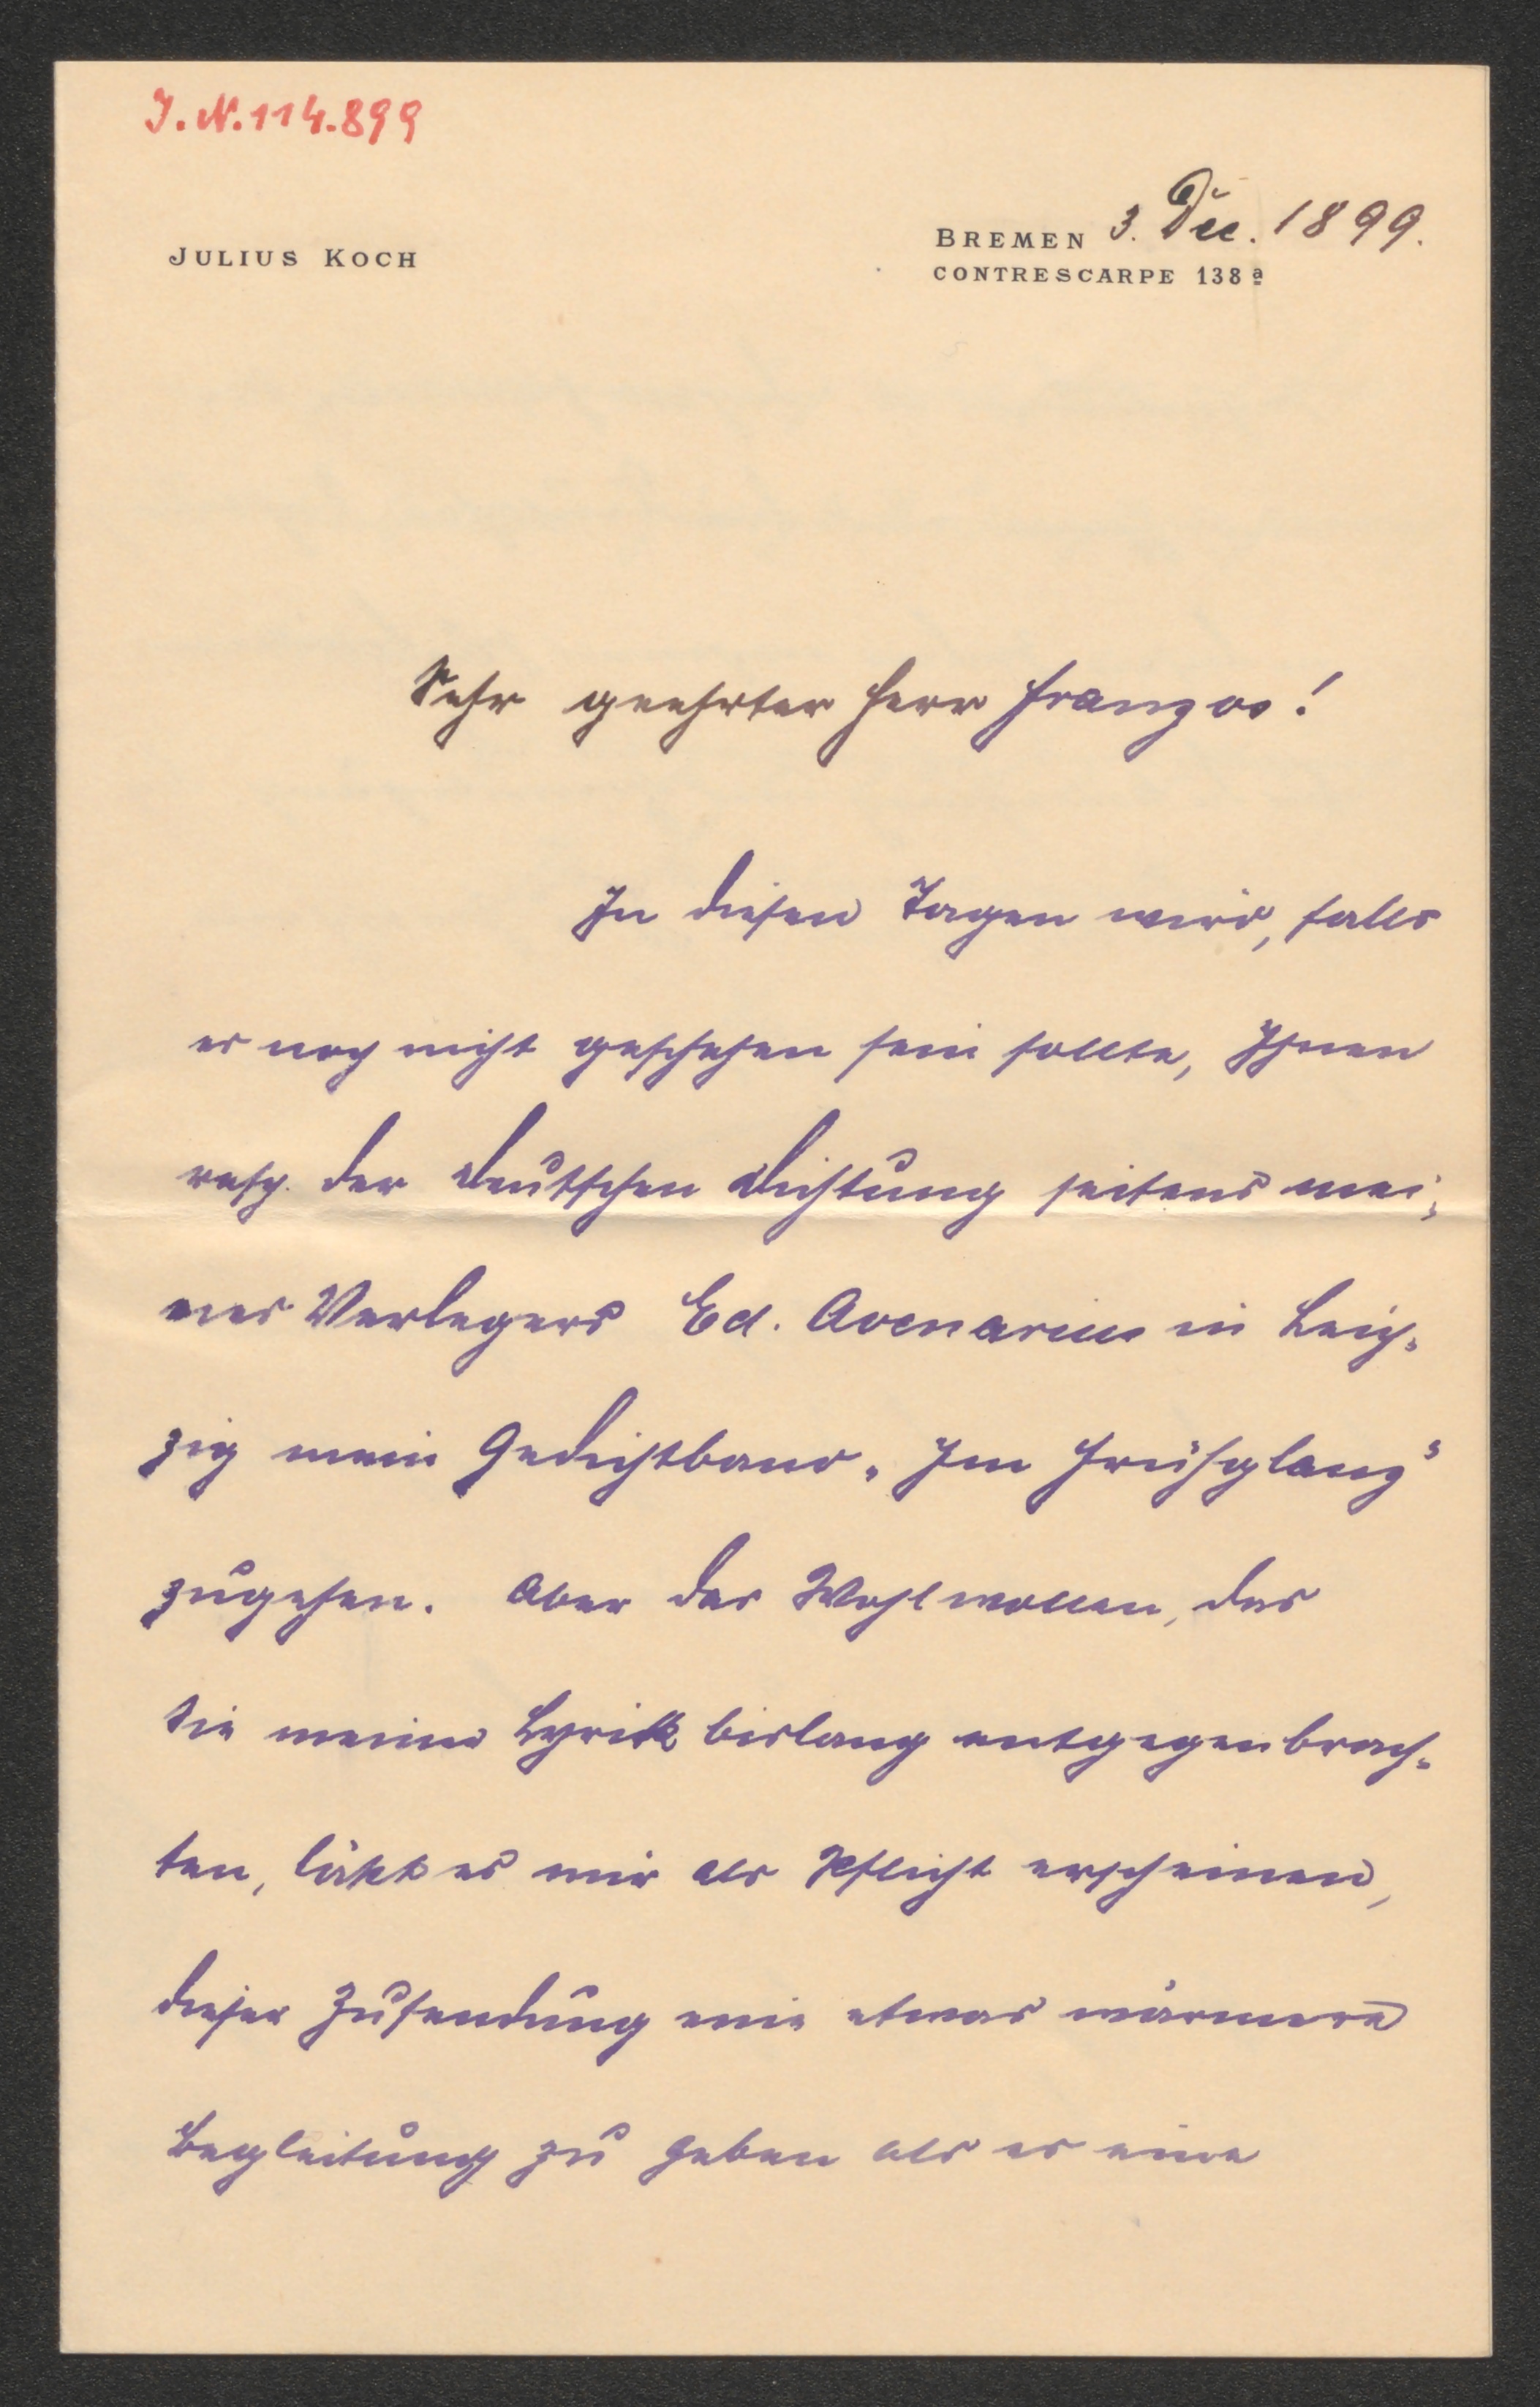 J.N.114.899
JULIUS KOCH
BREMEN 3. Dec. 1899.
CONTRESCARPE 138a
Sehr geehrter Herr Franzos!
In diesen Tagen wird, falls
es noch nicht geschehen sein sollte, Ihnen
resp. der Deutschen Dichtung seitens mei-
nes Verlegers Ed. Avenarius in Leip-
zig mein Gedichtband „Im Frühglanz"
zugehen. Aber das Wohlwollen, das
Sie meiner Lyrik bislang entgegenbrach-
ten, läßt es mir als Pflicht erscheinen,
dieser Zusendung eine etwas wärmere
Begleitung zu geben als es eine